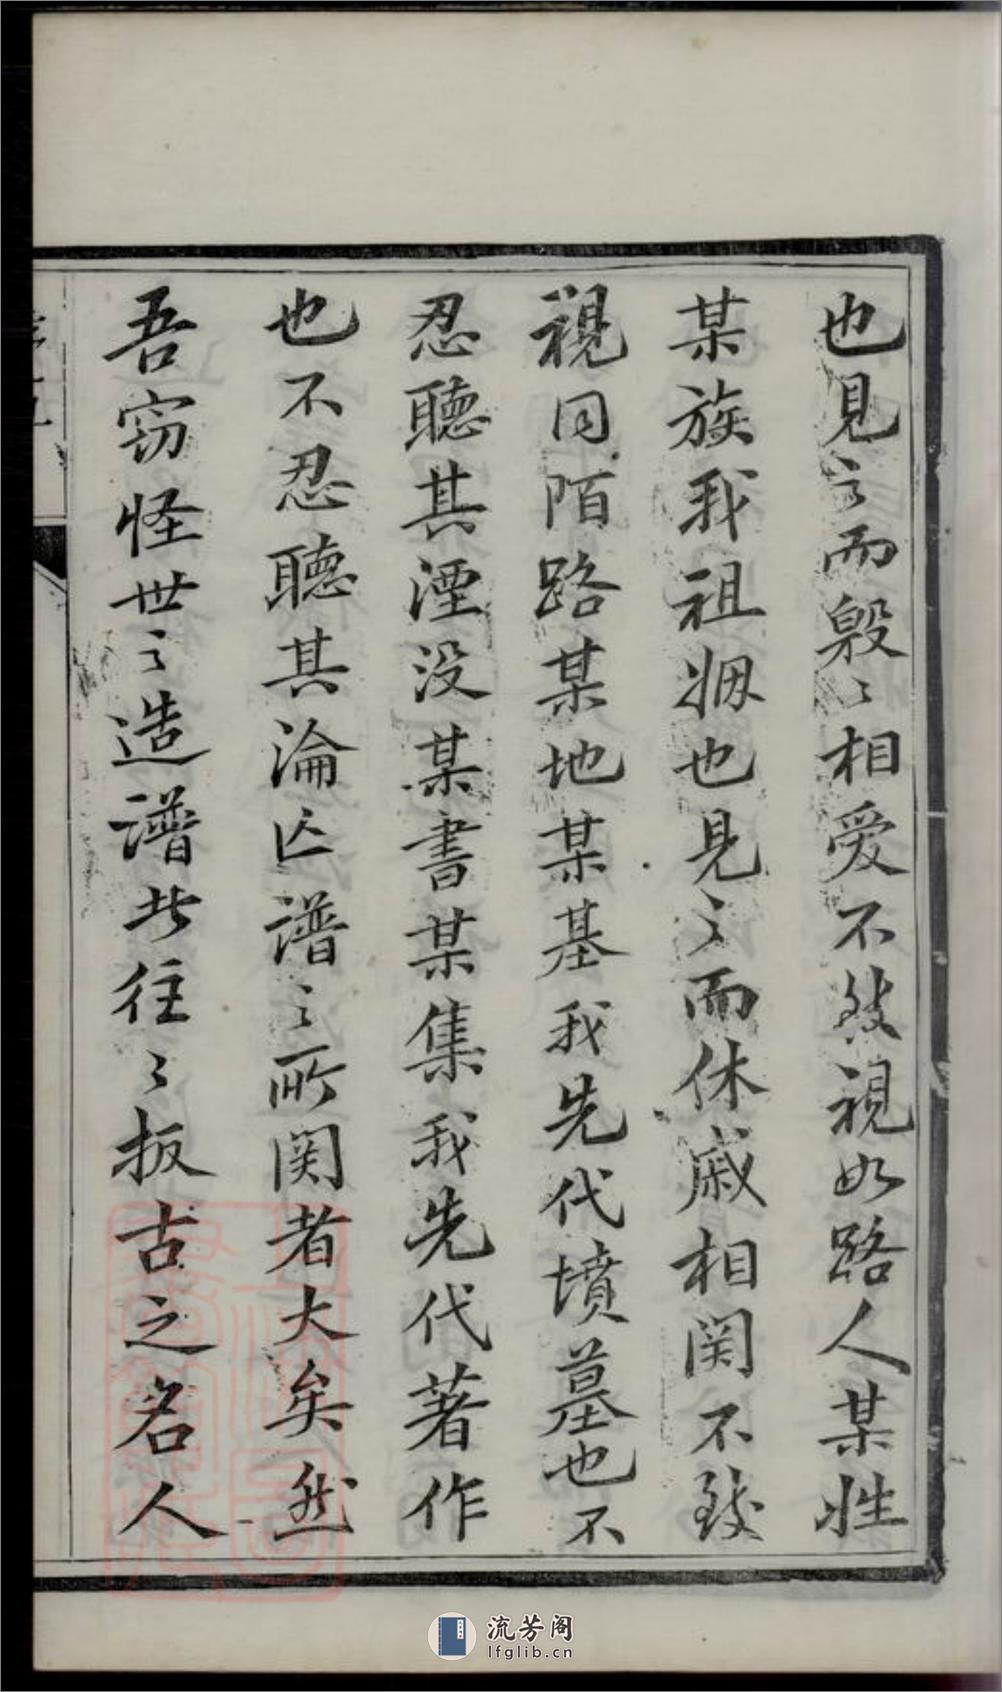 也見之而殷〻相愛不致視如路人某姓
某族我祖姻也見之而休戚相関不致
視同陌路某地某基我先代墳墓也不
忍聽其湮没某書某集我先代著作
也不忍聽其淪亾譜之所関者大矣然
吾窃怪世之造譜此往〻扳古之名人
流芳阁
lfglib.cn